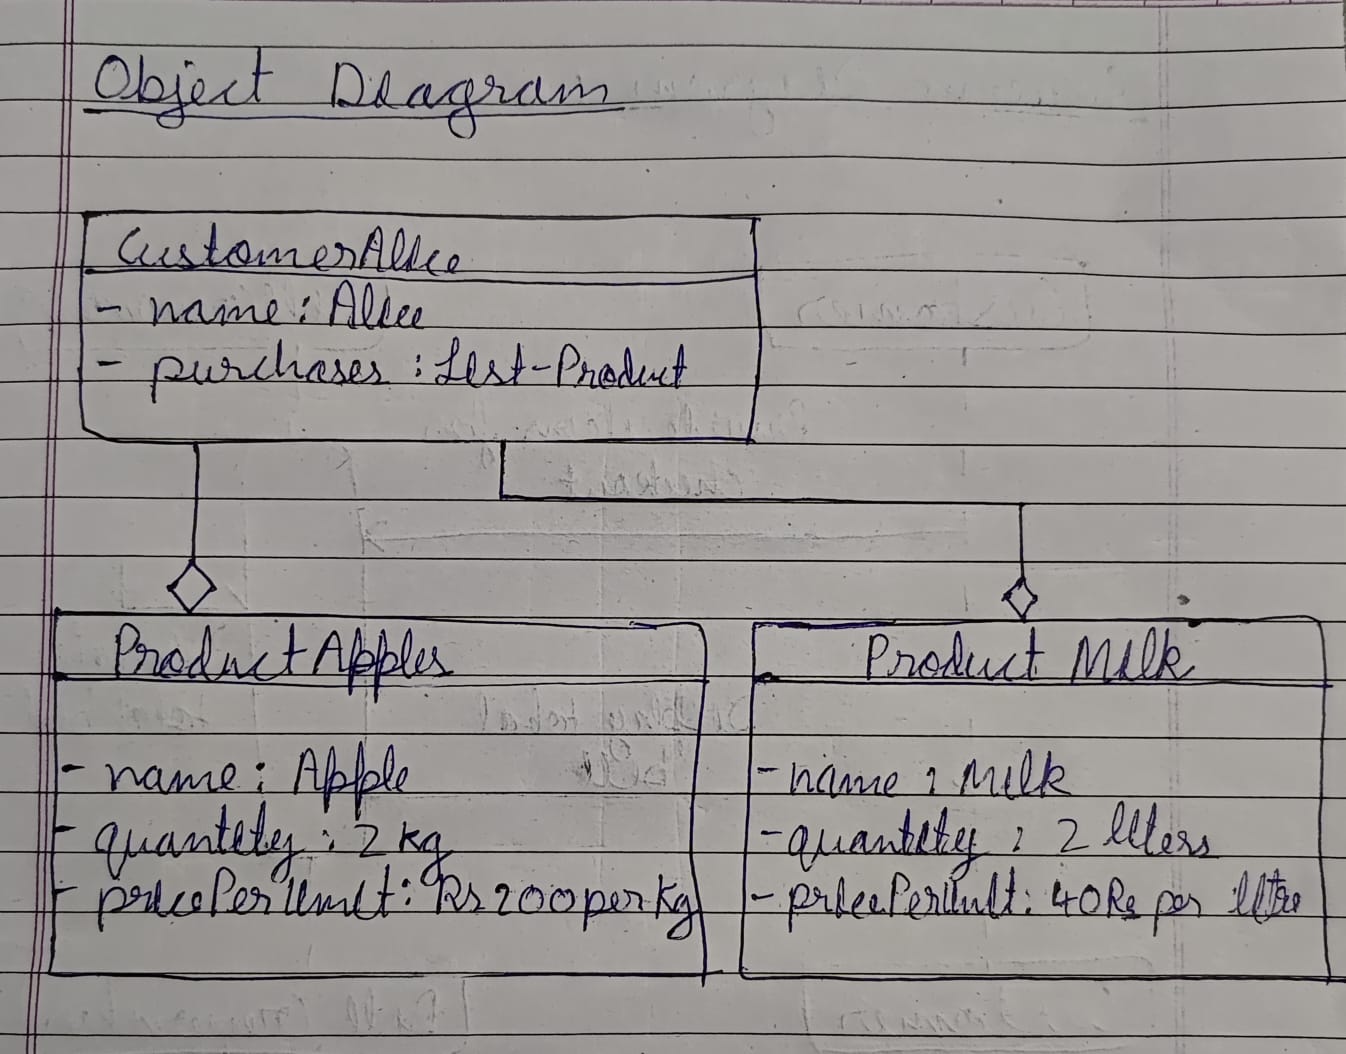 Object Diagram
CustomerAlice
- name : Alice
- purchases : List-Product
ProductApples
- name : Apple
- quantity : 2 kg
- pricePerUnit : Rs 200 per Kg
Product Milk
- name : Milk
- quantity : 2 liters
- pricePerUnit : 40Rs per litre